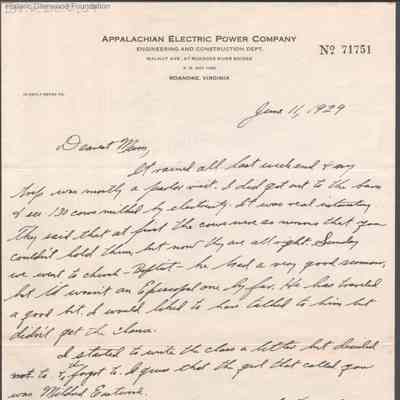 Historic Glenwood Foundation
APPALACHIAN ELECTRIC POWER COMPANY
ENGINEERING AND CONSTRUCTION DEPT.
WALNUT AVE., AT ROANOKE RIVER BRIDGE
ROANOKE, VIRGINIA
No 71751
IN REPLY REFER TO:
June 11, 1929
Dearest Mom,
It rained all last weekend & my
trip was mostly a parlor visit. I did get out to the barn
& see 130 cows milked by electricity. It was real interesting
They said that at first the cows were so nervous that you
couldn't hold them but now they are all right. Sunday
we went to church - Baptist - he had a very good sermon,
but it wasn't an Episcopal one by far. He has traveled
a good bit. I would liked to have talked to him but
didn't get the chance.
I started to write the class a letter but decided
not to & then forgot to. I guess that the girl that called you
was Mildred